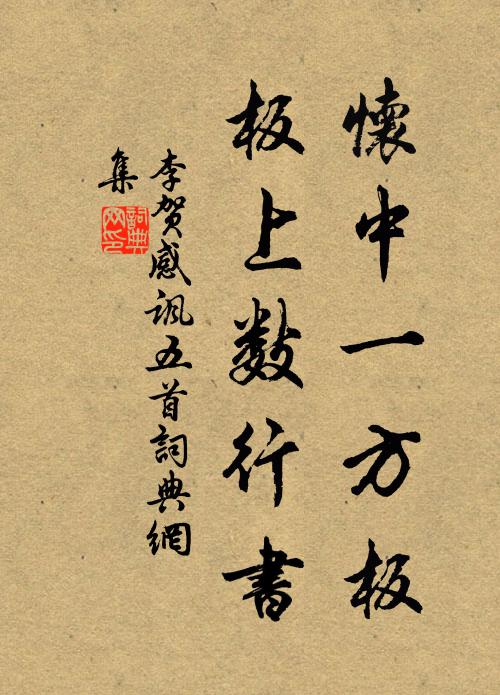 懷中一方板
板上数行書
李贺感讽五首詞典網
集
詞典
网印